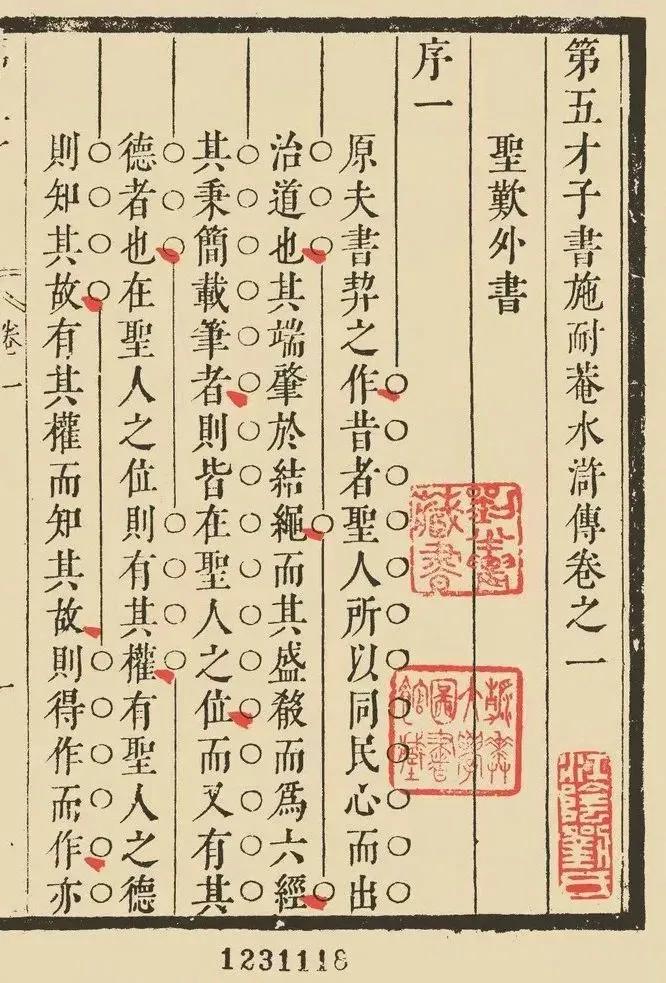 第五才子書施耐菴水滸傳卷之一
聖歎外書
序一
原夫書契之作昔者聖人所以同民心而出
治道也其端肇於結繩而其盛殽而爲六經
其秉簡載筆者則皆在聖人之位而又有其
德者也在聖人之位則有其權有聖人之德
則知其故有其權而知其故則得作而作亦
卷一
劉半農藏書
江陰劉氏
1231118